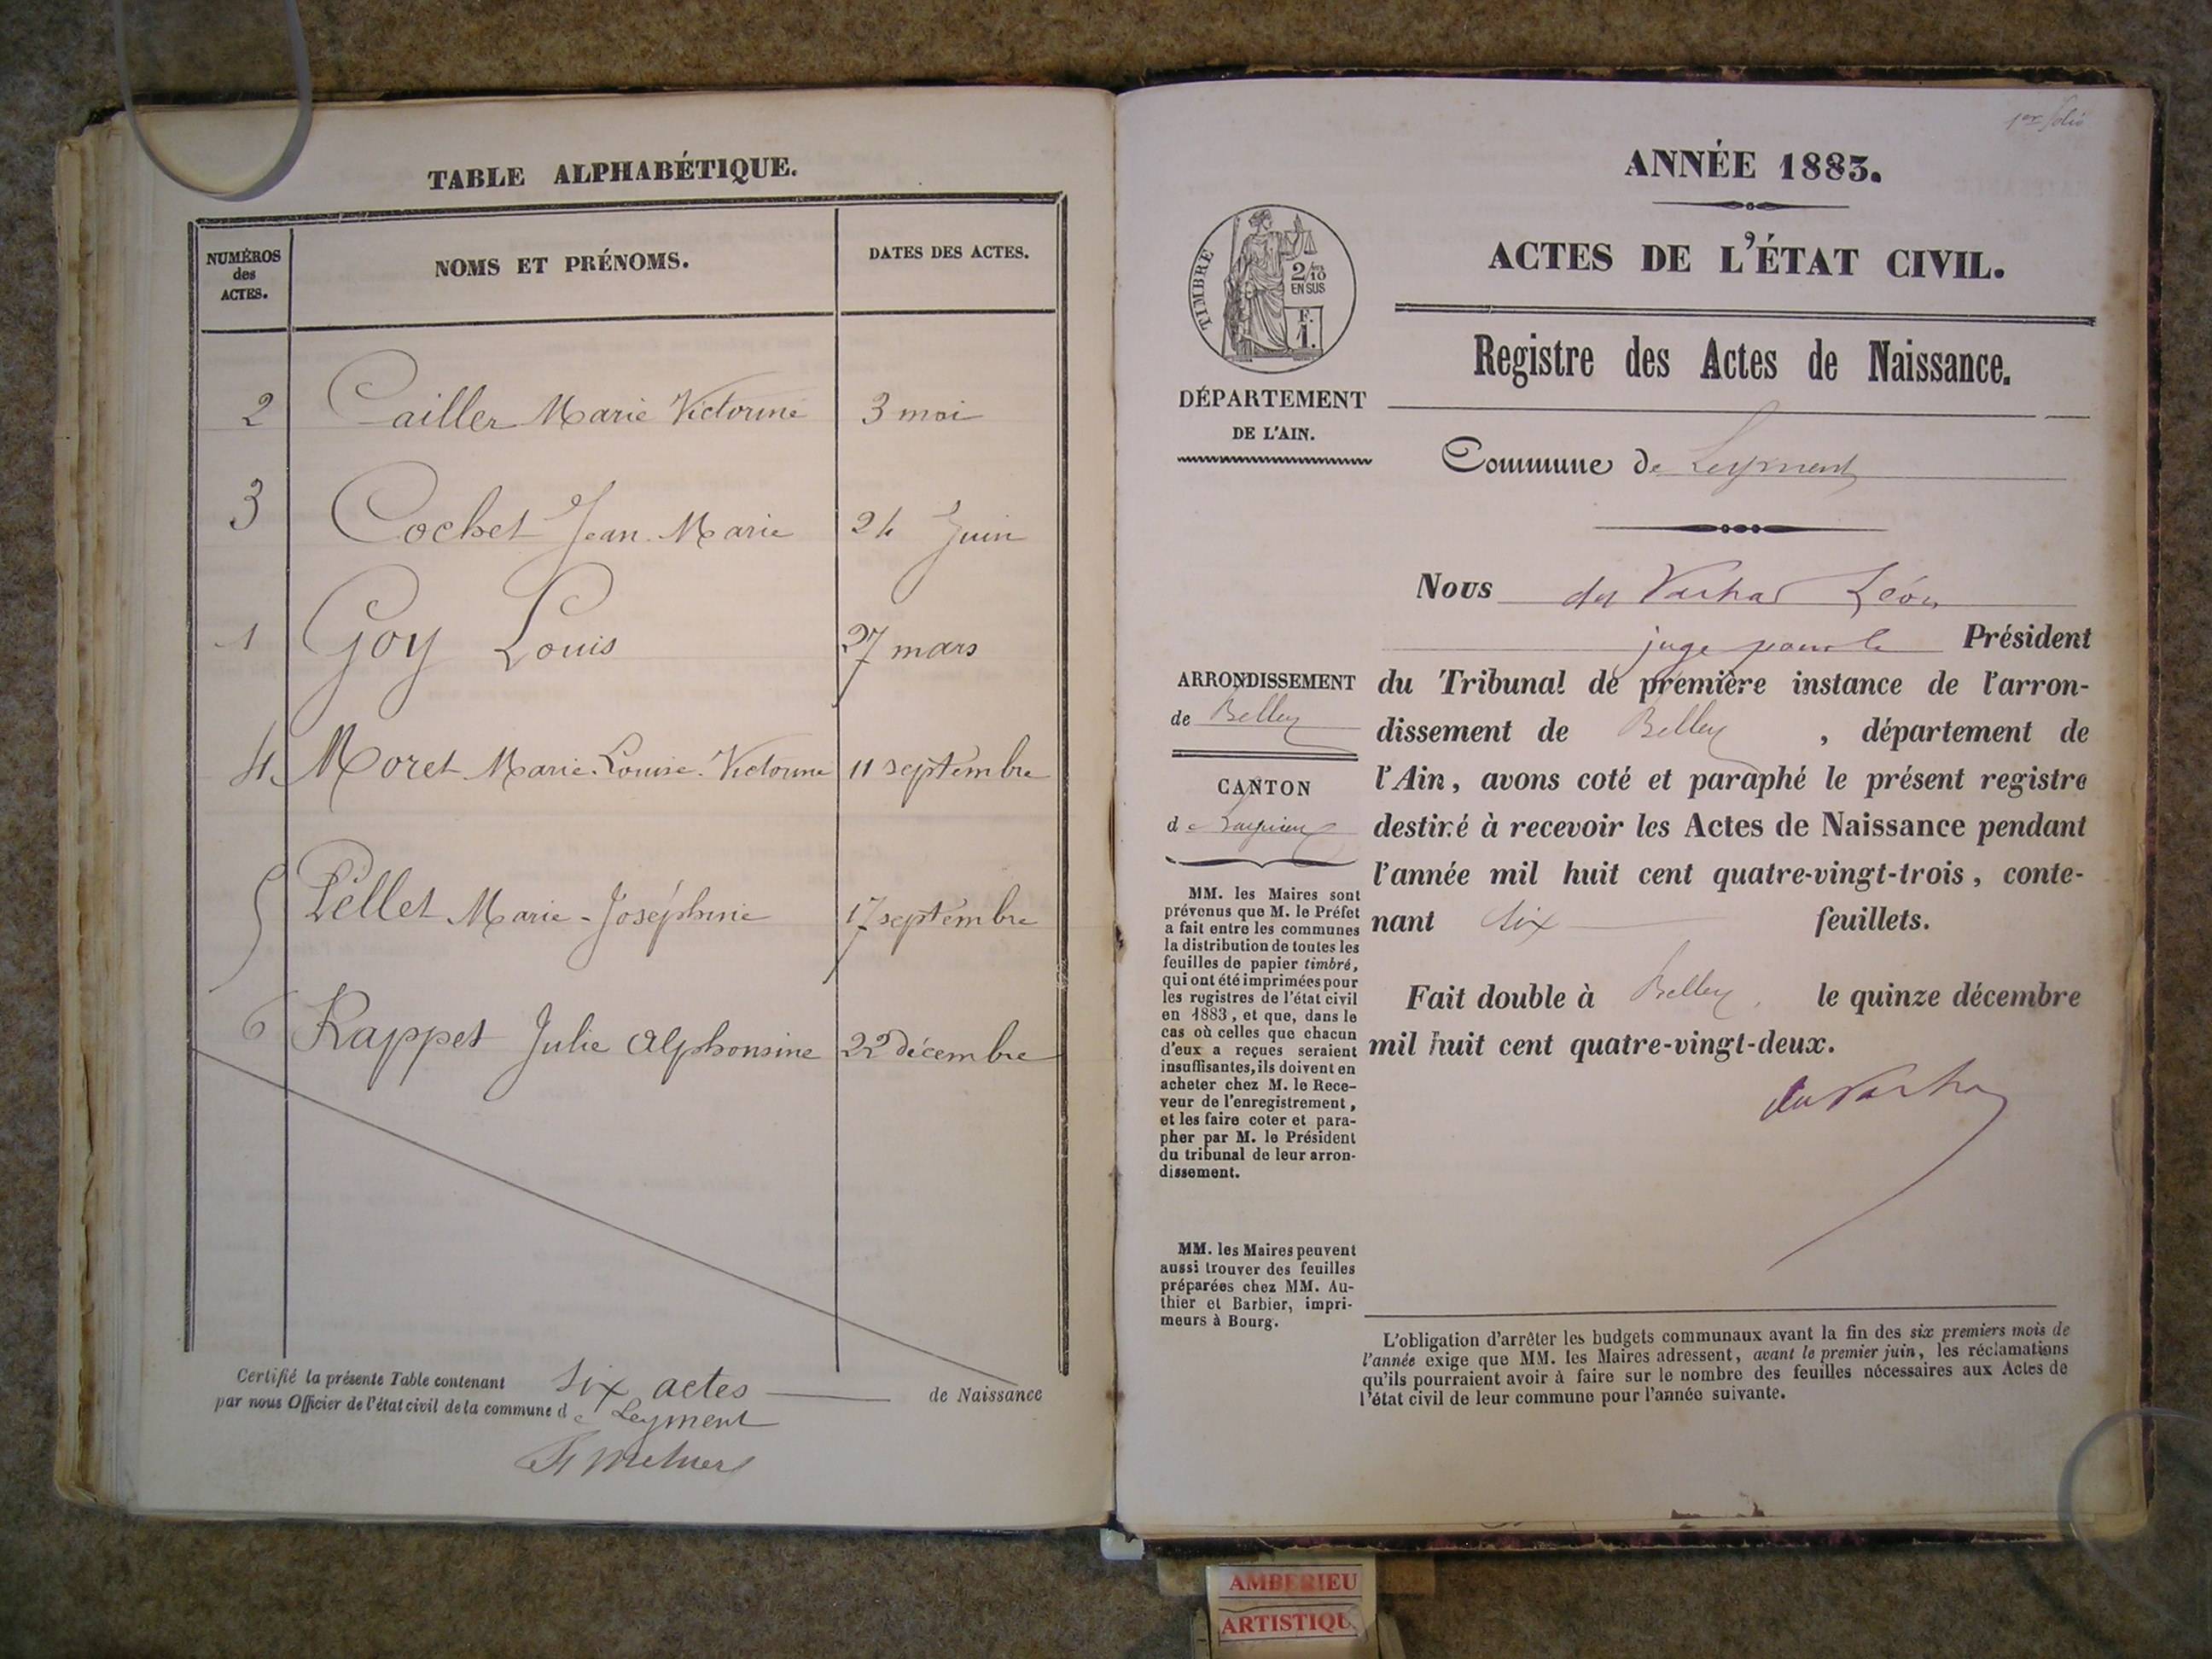 TABLE ALPHABÉTIQUE.
NUMÉROS
des
ACTES.
NOMS ET PRÉNOMS.
DATES DES ACTES.
2 Cailler Marie Victorine 3 mai
3 Cochet Jean-Marie 24 Juin
1 Goy Louis 27 mars
4 Moret Marie-Louise-Victorine 11 septembre
5 Pellet Marie-Joséphine 17 septembre
6 Rappet Julie Alphonsine 22 décembre
Certifié la présente Table contenant six actes de Naissance
par nous Officier de l'état civil de la commune de Leyment
1er folio
ANNÉE 1883.
ACTES DE L'ÉTAT CIVIL.
TIMBRE
2/10
EN SUS
F.
1.
Registre des Actes de Naissance.
DÉPARTEMENT
DE L'AIN.
Commune de Leyment
Nous Léon
juge pour le Président
du Tribunal de première instance de l'arron-
dissement de Belley, département de
l'Ain, avons coté et paraphé le présent registre
destiné à recevoir les Actes de Naissance pendant
l'année mil huit cent quatre-vingt-trois, conte-
nant six feuillets.
Fait double à Belley, le quinze décembre
mil huit cent quatre-vingt-deux.
ARRONDISSEMENT
de Belley
CANTON
de Lagnieu
MM. les Maires sont
prévenus que M. le Préfet
a fait entre les communes
la distribution de toutes les
feuilles de papier timbré,
qui ont été imprimées pour
les registres de l'état civil
en 1883, et que, dans le
cas où celles que chacun
d'eux a reçues seraient
insuffisantes, ils doivent en
acheter chez M. le Rece-
veur de l'enregistrement,
et les faire coter et para-
pher par M. le Président
du tribunal de leur arron-
dissement.
MM. les Maires peuvent
aussi trouver des feuilles
préparées chez MM. Au-
thier et Barbier, impri-
meurs à Bourg.
L'obligation d'arrêter les budgets communaux avant la fin des six premiers mois de
l'année exige que MM. les Maires adressent, avant le premier juin, les réclamations
qu'ils pourraient avoir à faire sur le nombre des feuilles nécessaires aux Actes de
l'état civil de leur commune pour l'année suivante.
AMBERIEU
ARTISTIQU